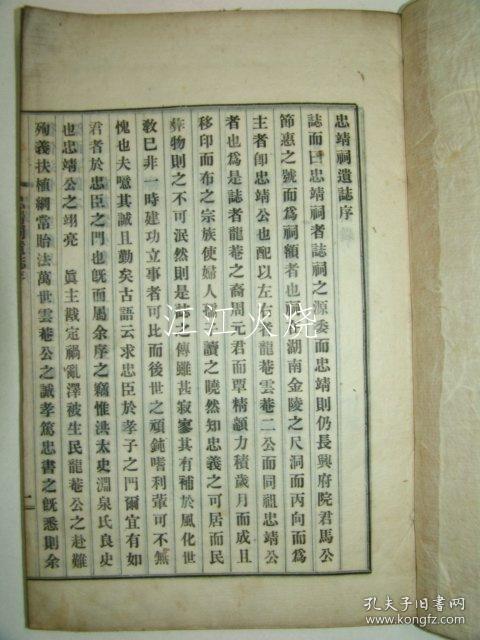 忠靖祠遺誌序
誌而曰忠靖祠者誌祠之源委而忠靖則仍長興府院君馬公
節惠之號而爲祠額者也而湖南金陵之尺洞而丙向而爲
主者卽忠靖公也配以左右龍菴雲菴二公而同祖忠靖公
者也爲是誌者龍菴之裔周元君而覃精顓力積歲月而成且
移印而布之宗族使婦人孺子讀之曉然知忠義之可居而民
彜物則之不可泯然則是誌之傳雖甚寂寥其有補於風化世
敎已非一時建功立事者可比而後世之頑鈍嗜利輩可不無
愧也夫噫其誠且勤矣古語云求忠臣於孝子之門爾宜有如
君者於忠臣之門也旣而屬余序之竊惟洪太史淵泉氏良史
也忠靖公之翊亮 眞主戡定禍亂澤被生民龍菴公之赴難
殉義扶植綱常貽法萬世雲菴公之誠孝篤忠書之旣悉則余
二
汪江火烧
孔夫子旧书网
kongfz.com